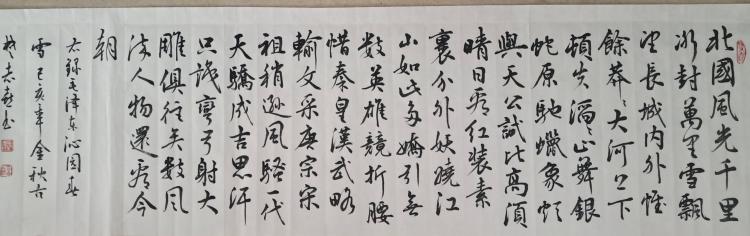 北國風光千里
冰封萬里雪飄
望長城內外惟
餘莽〻大河上下
頓失滔〻山舞銀
蛇原馳蠟象欲
與天公試比高須
晴日看紅裝素
裹分外妖嬈江
山如此多嬌引無
數英雄競折腰
惜秦皇漢武略
輸文采唐宗宋
祖稍遜風騷一代
天驕成吉思汗
只識彎弓射大
雕俱往矣數風
流人物還看今
朝
録毛澤東沁園春
雪己亥年金秋吉
志書